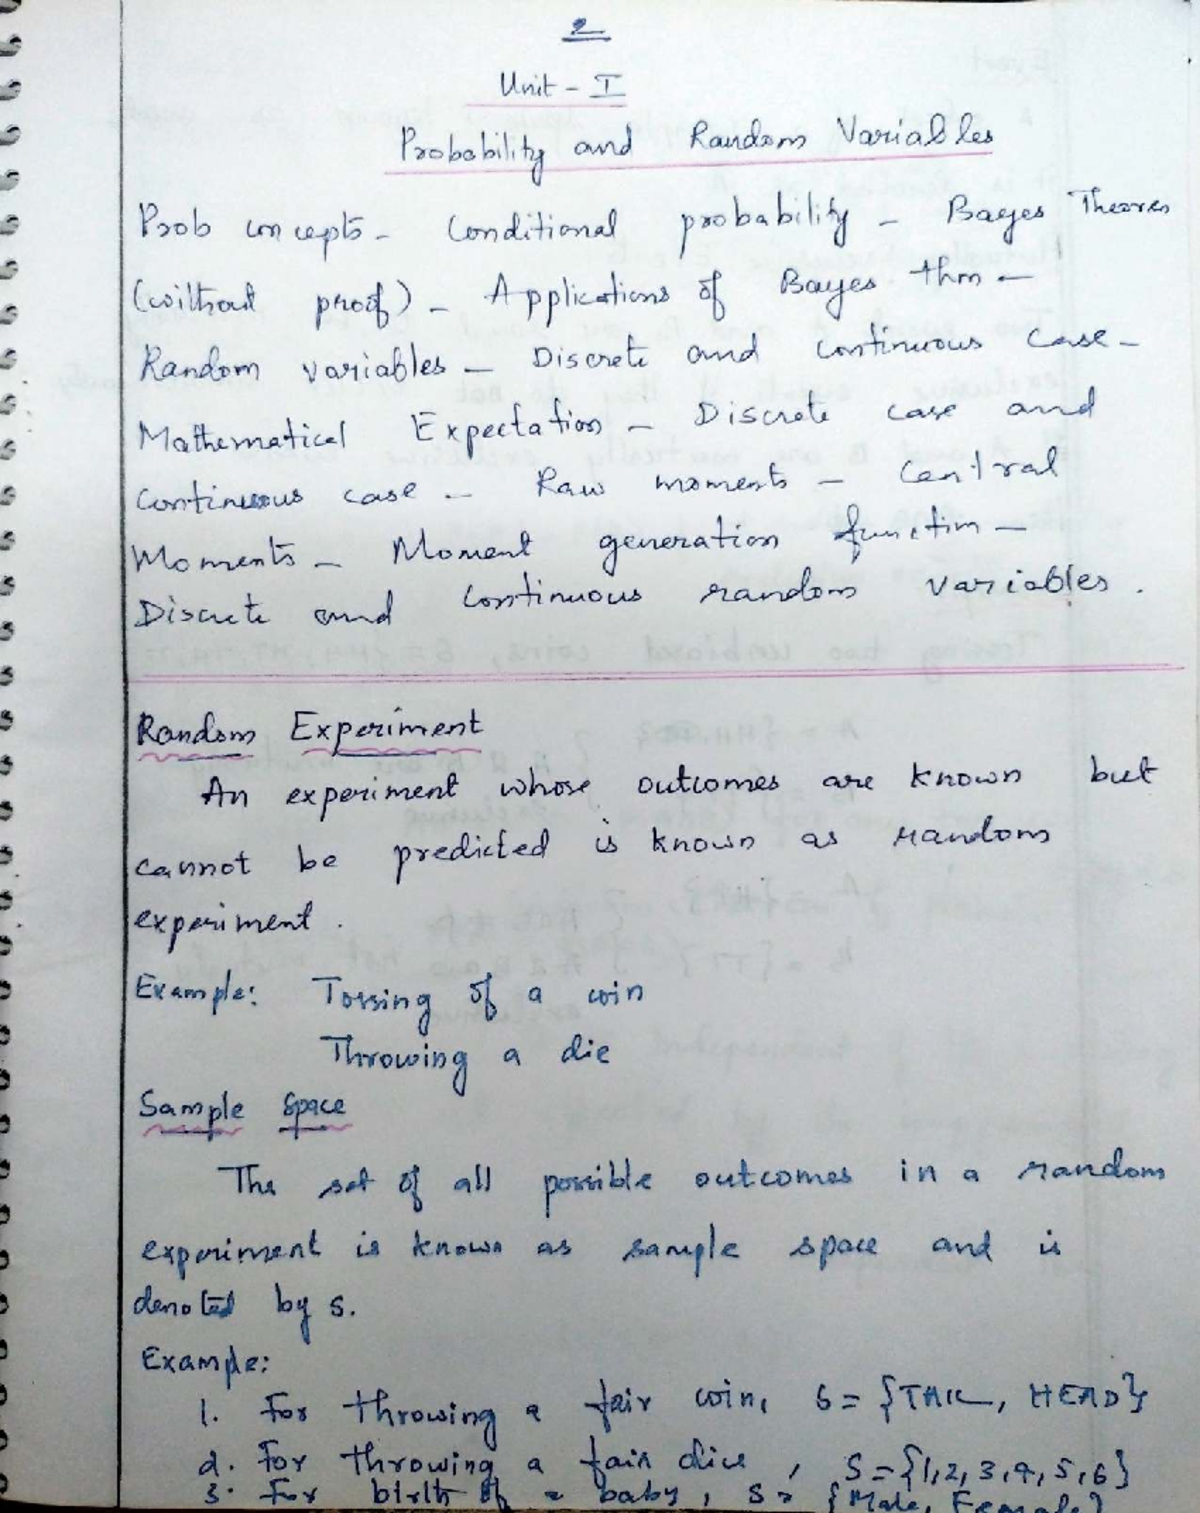 2
Unit - I
Probability and Random Variables
Prob concepts - Conditional probability - Bayes Theorem
(without proof) - Applications of Bayes thm -
Random variables - Discrete and continuous case -
Mathematical Expectation - Discrete case and
continuous case - Raw moments - Central
Moments - Moment generation function -
Discrete and continuous random variables.
Random Experiment
An experiment whose outcomes are known but
cannot be predicted is known as random
experiment.
Example: Tossing of a coin
Throwing a die
Sample space
The set of all possible outcomes in a random
experiment is known as sample space and is
denoted by s.
Example:
1. For throwing a fair coin, S = {TAIL, HEAD}
2. For throwing a fair dice, S = {1,2,3,4,5,6}
3. For birth of a baby, S = {Male, Female}